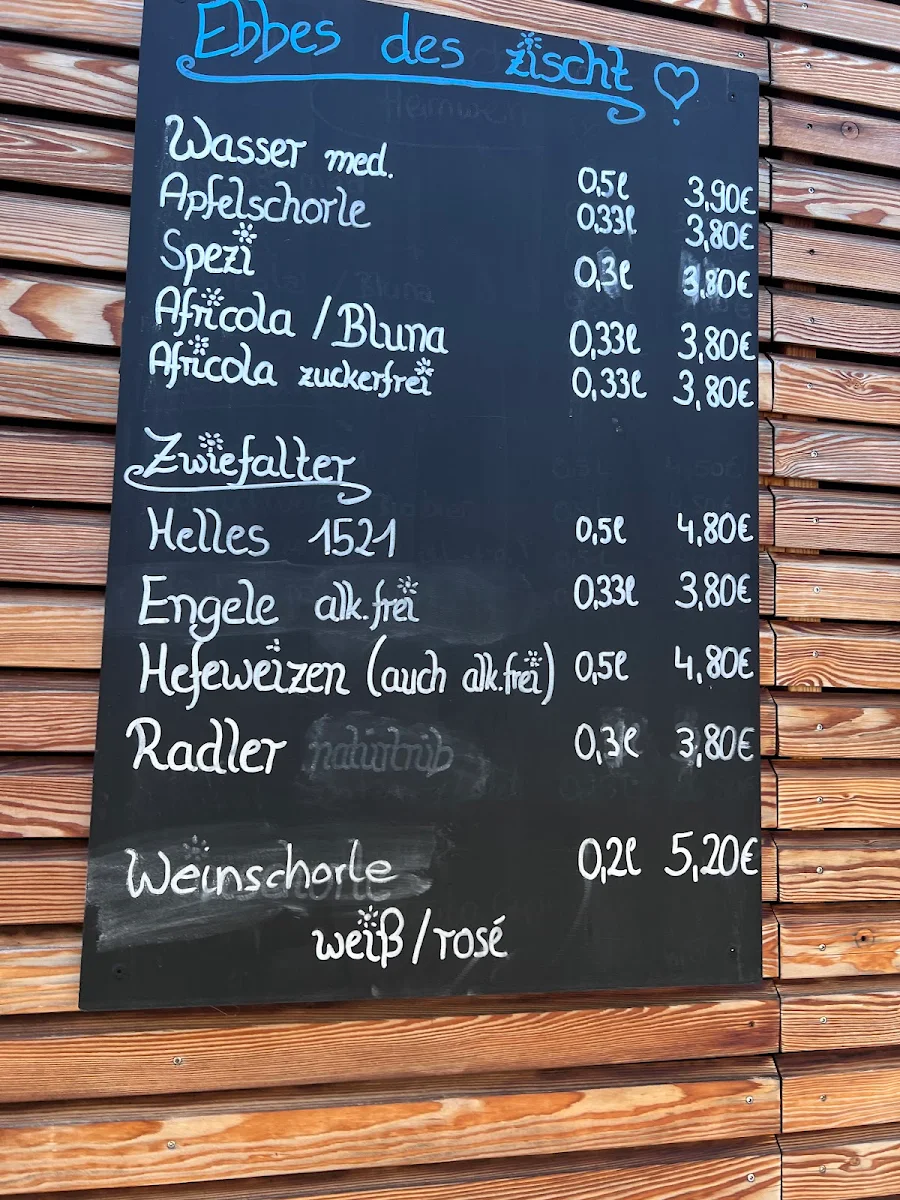 Ebbes des zischt
Wasser med. 0,5l 3,90€
Apfelschorle 0,33l 3,80€
Spezi 0,3l 3,80€
Africola / Bluna 0,33l 3,80€
Africola zuckerfrei 0,33l 3,80€
Zwiefalter
Helles 1521 0,5l 4,80€
Engele alk.frei 0,33l 3,80€
Hefeweizen (auch alk.frei) 0,5l 4,80€
Radler naturtrüb 0,3l 3,80€
Weinschorle 0,2l 5,20€
weiß/rosé